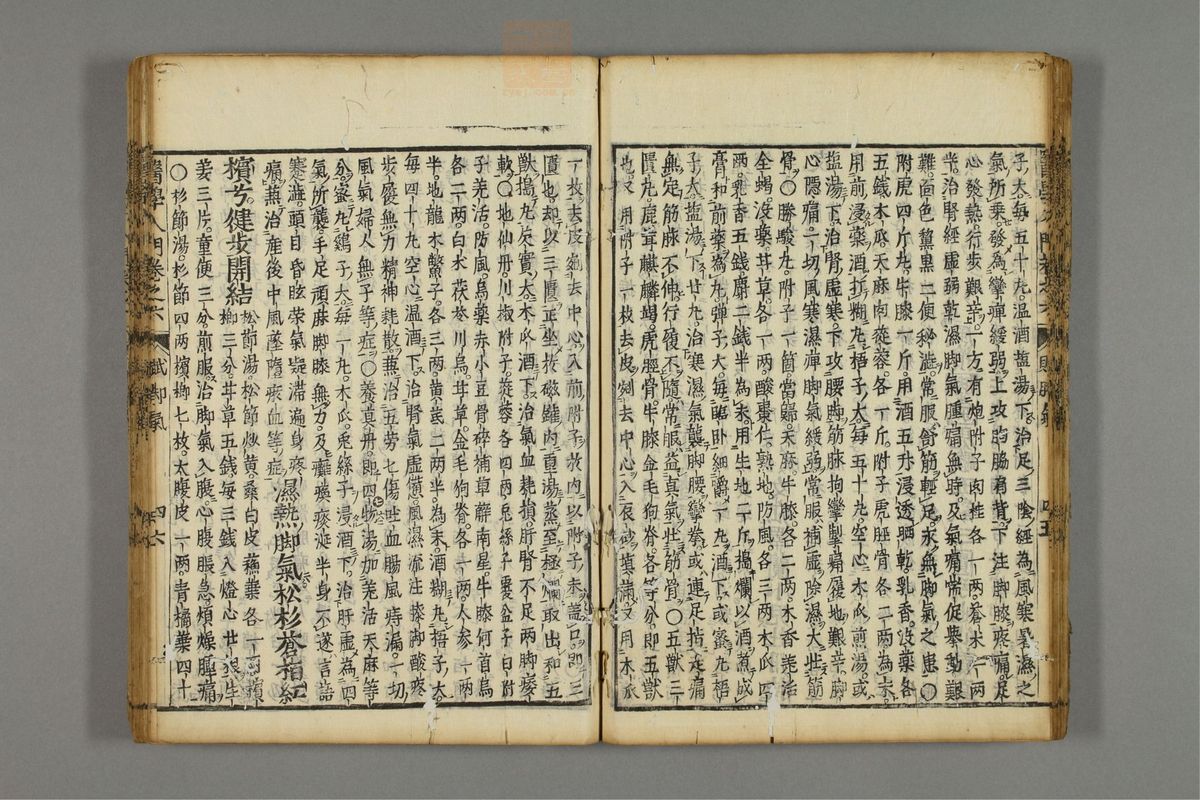 子大每五十丸溫酒盐湯下治足三陰經為風寒暑濕之
氣所乗發為攣痺緩弱上攻胸脇肩背下注脚膝疼痛足
心發熱行歩艱辛一方有炮附子肉桂各一兩蒼朮一兩
半治腎經虛弱乾濕脚氣腫痛無時及氣痛常促舉動艱
難面色黧黑二便秘澁常服舒筋輕足永無脚氣之患○
附虎四斤丸牛膝一斤用酒五升浸透晒乾乳香没藥各
五錢木瓜天麻肉蓯蓉各一斤附子虎脛骨各二兩為末
用前浸藥酒打糊丸梧子大每五十丸空心木瓜煎湯或
盐湯下治腎虛寒下攻腰筋脉拘攣掣痛履地艱辛脚
心隱痛一切風寒濕痺脚氣緩弱常服補虛除濕大壯筋
骨○勝駿丸附子一箇當歸天麻牛膝各二兩木香羌活
全蝎没藥甘草各一兩酸棗仁熟地防風各三兩木瓜四
兩乳香五錢麝二錢半為末用生地二斤搗爛以酒煮成
膏和前藥為丸弹子大每臨卧細嚼一丸酒下或蜜丸梧
子大盐湯下廿丸治寒濕氣襲脚腰攣拳或連足指走痛
無定筋脉不伸行復不隨常服益真氣壯筋骨○五獸三
匱丸鹿茸麒麟竭虎脛骨牛膝金毛狗脊各等分即五獸
也又用附子一枚去皮剜去中心入辰砂填滿又用木瓜
一枚去皮剜去中心入前附子於内以附子末盖口即三
匱也却以三匱正坐於磁罐内重湯蒸至極爛取出和五
獸搗丸芡實大木瓜酒下治氣血耗損肝腎不足兩脚痿
軟○地仙丹川椒附子蓯蓉各四兩兎絲子覆盆子白附
子羌活防風烏藥赤小豆骨碎補萆薢南星牛膝何首烏
各二兩白朮茯苓川烏甘草金毛狗脊各一兩人參一兩
半地龍木鱉子各三兩黄芪二兩半為末酒糊丸梧子大
每四十丸空心溫酒下治腎氣虛憊風濕流注膝脚酸疼
歩履無力精神耗散兼治五勞七傷吐血腸風痔漏一切
風氣婦人無子等症○養真丹即四物湯加羌活天麻等
分蜜丸鷄子大每一丸木瓜兎絲子浸酒下治肝虛為四
氣所襲手足頑麻脚膝無力及癱瘓痰涎半身不遂言語
蹇澁頭目昏眩荣氣凝滞遍身疼痛
兼治產後中風墜墮瘀血等症濕熱脚氣松杉蒼栢紅
檳芍健步開結松節湯松節炒黄桑白皮蘇葉各一兩檳
榔三分甘草五錢每三錢入燈心廿根生
姜三片童便三分煎服治脚氣入腹心腹脹急煩燥腫痛
○杉節湯杉節四兩檳榔七枚大腹皮一兩青橘葉四十
醫學入門卷之六
脚氣
四五
四六